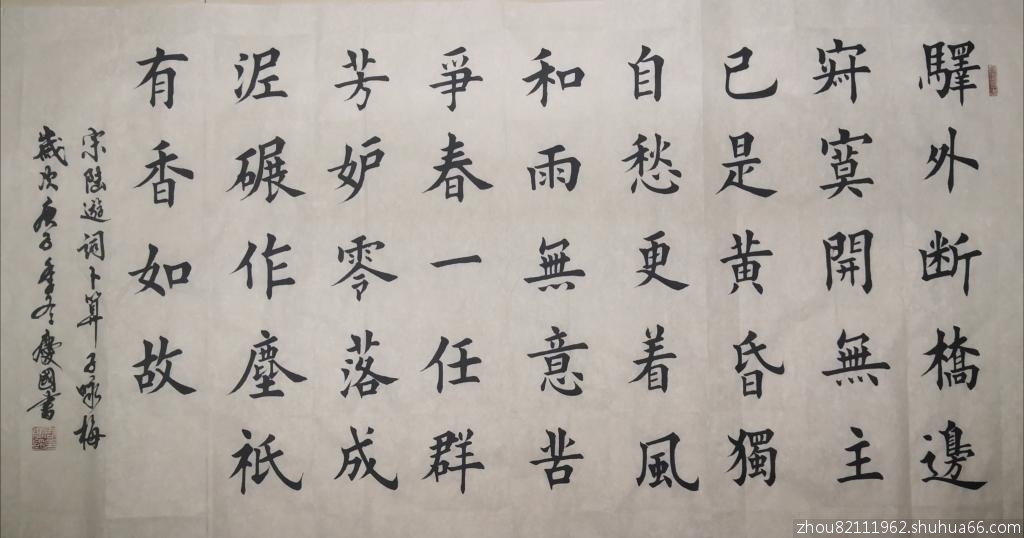 驛外断橋邊
寂寞開無主
已是黄昏獨
自愁更着風
和雨無意苦
爭春一任群
芳妒零落成
泥碾作塵祇
有香如故
宋陸遊詞卜算子咏梅
歲次庚子季冬慶國書
zhou82111962.shuhua66.com